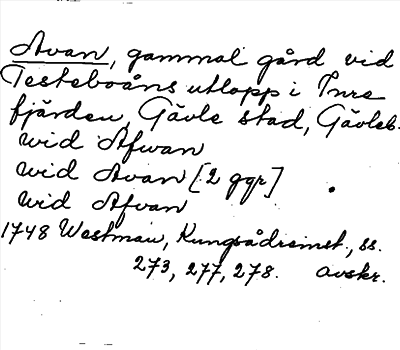 Avan, gammal gård vid
Testeboåns utlopp i Inre
fjärden, Gävle stad, Gävleb.
wid Afwan
wid Avan [2 ggr]
wid Afvan
1748 Westman, Kungsådreinst., ss.
273, 277, 278. avskr.